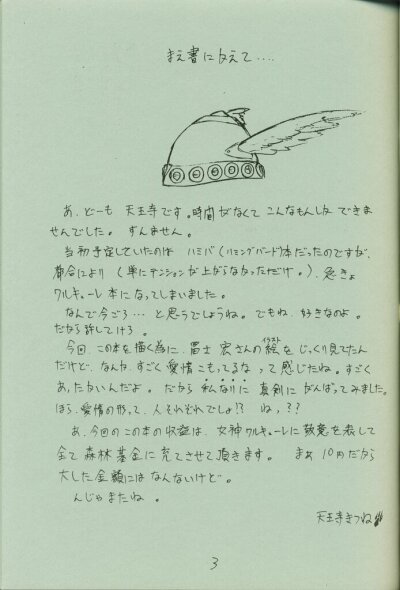 まえ書にかえて・・・・
あ、どーも 天王寺です。時間がなくて こんなもんしか できま
せんでした。 すんません。
当初予定していたのは ハミバ(ハミングバード)本だったのですが、
都合により (単にテンションが上がらなかっただけ。)、急きょ
ワルキューレ本になってしまいました。
なんで今ごろ・・・と思うでしょうね。でもね、好きなのよ。
だから許してけろ。
今回、この本を描く為に、冨士 宏さんの絵を じっくり見てたん
イラスト
だけど、なんか、すごく愛情こもってるな って感じたね。すごく
あったかいんだよ。 だから 私なりに 真剣に がんばってみました。
ほら、愛情の形って、人それぞれでしょ!? ね、??
あ、今回のこの本の収益は、女神ワルキューレに敬意を表して
全て 森林基金に 充てさせて頂きます。 まぁ 10円だから
大した金額には なんないけど。
んじゃまたね。
天王寺きつね
3